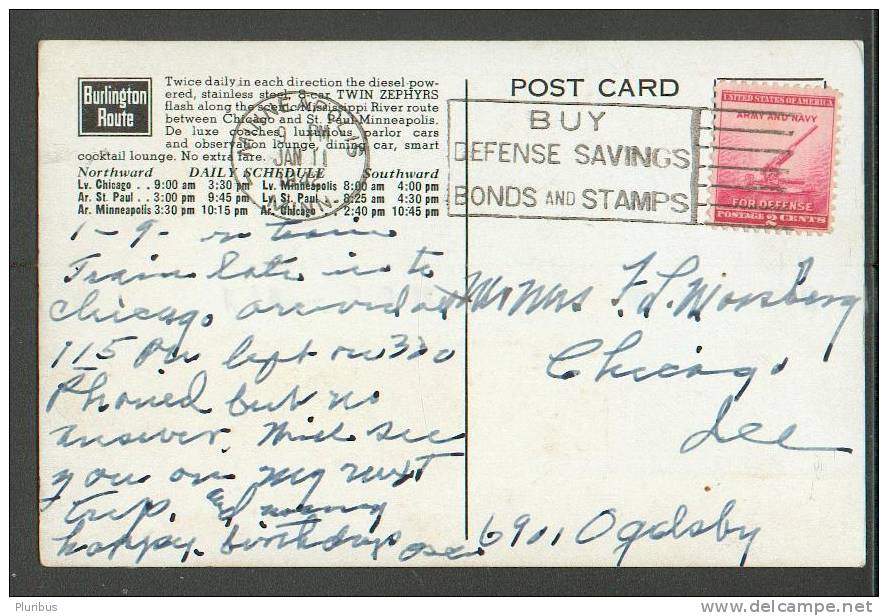 Burlington
Route
Twice daily in each direction the diesel-pow-
ered, stainless steel, 8-car TWIN ZEPHYRS
flash along the scenic Mississippi River route
between Chicago and St. Paul-Minneapolis.
De luxe coaches, luxurious parlor cars
and observation lounge, dining car, smart
cocktail lounge. No extra fare.
Northward DAILY SCHEDULE Southward
Lv. Chicago . . 9:00 am 3:30 pm Lv. Minneapolis 8:00 am 4:00 pm
Ar. St. Paul . . 3:00 pm 9:45 pm Lv. St. Paul . . 8:25 am 4:30 pm
Ar. Minneapolis 3:30 pm 10:15 pm Ar. Chicago . . 2:40 pm 10:45 pm
MINNEAPOLIS
9 PM
JAN 11
1942
MINN.
POST CARD
BUY
DEFENSE SAVINGS
BONDS AND STAMPS
UNITED STATES OF AMERICA
ARMY AND NAVY
FOR DEFENSE
POSTAGE 2 CENTS
1-9- on train
Train late in to
Chicago arrived at
115 PM left on 330
Phoned but no
answer. Will see
you on my next
trip. and many
happy birthdays
Mr Mrs F. L.
Chicago
Ill
6901 Ogdsby
Pluribus
www.delcampe.net